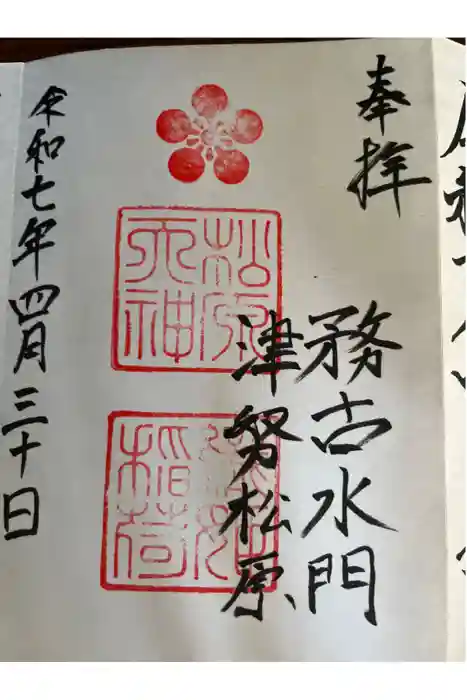 奉拝
務古水門
津努松原
松原
天神
稲荷
令和七年四月三十日